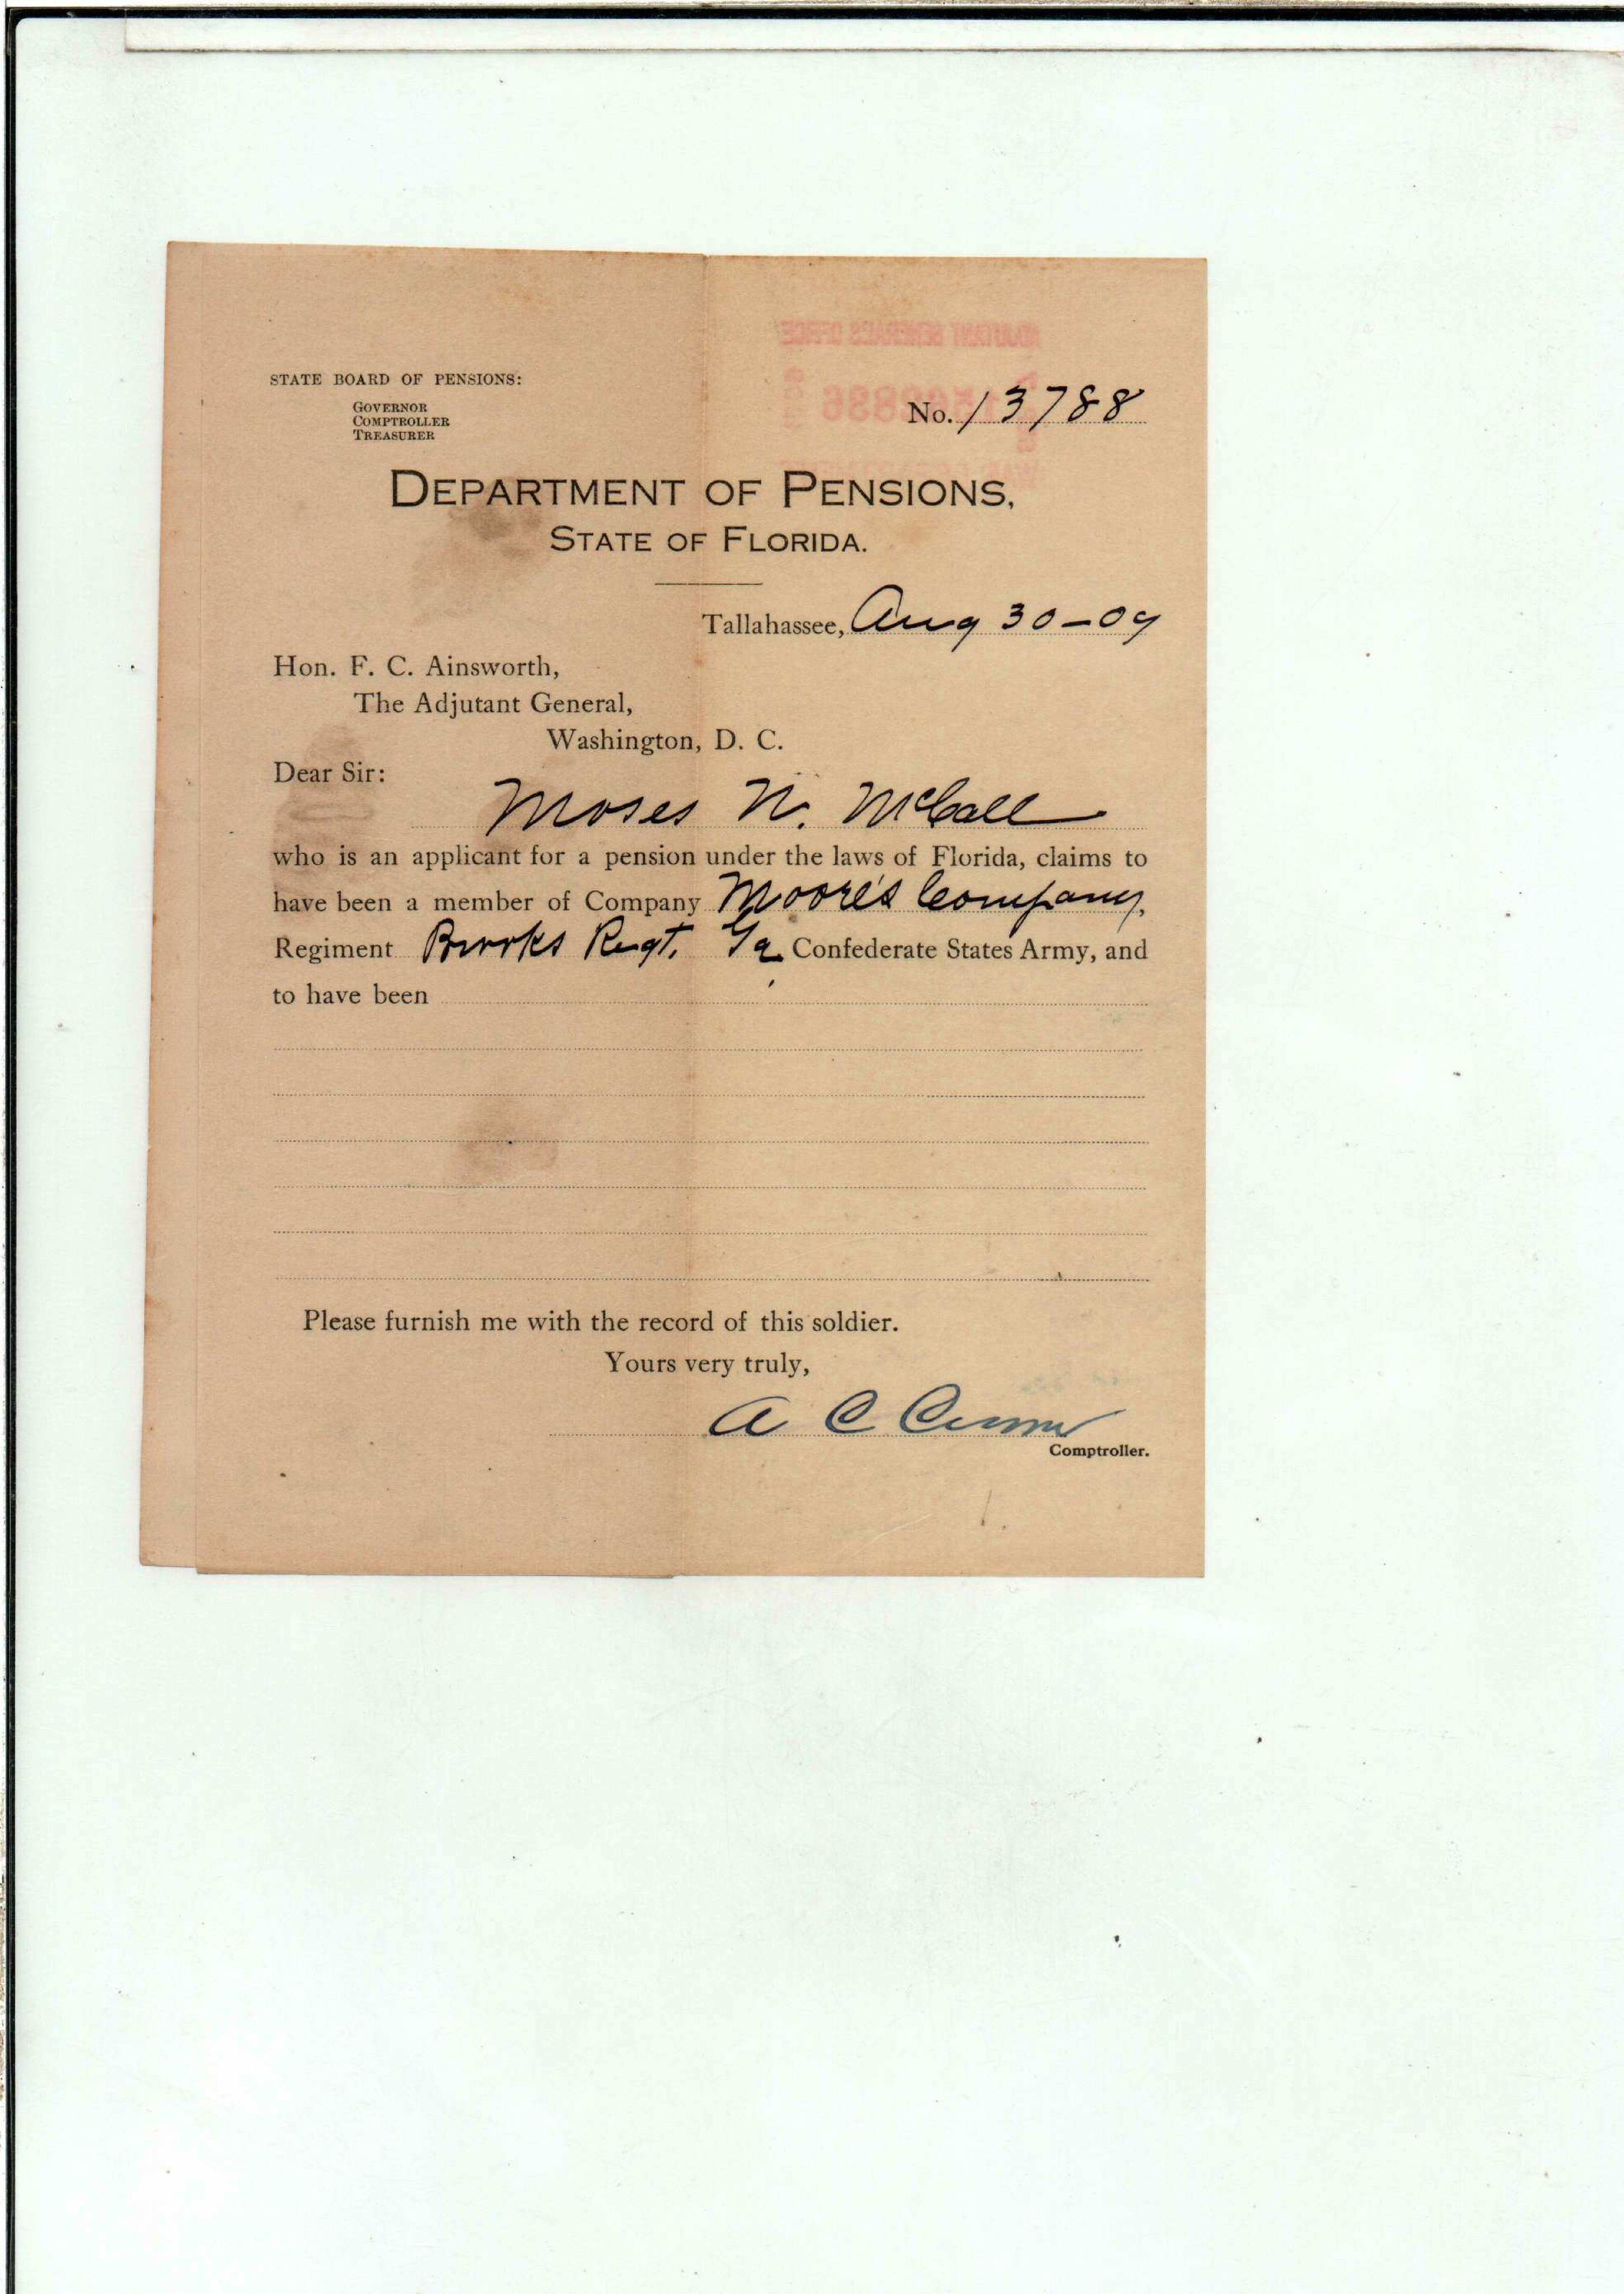 STATE BOARD OF PENSIONS:
GOVERNOR
COMPTROLLER
TREASURER
ADJUTANT GENERAL'S OFFICE
No. 13788
DEPARTMENT OF PENSIONS,
STATE OF FLORIDA.
Tallahassee, Aug 30-09
Hon. F. C. Ainsworth,
The Adjutant General,
Washington, D. C.
Dear Sir:
Moses N. McCall
who is an applicant for a pension under the laws of Florida, claims to
have been a member of Company Moore's Company,
Regiment Brooks Regt. Ga Confederate States Army, and
to have been
Please furnish me with the record of this soldier.
Yours very truly,
A C
Comptroller.